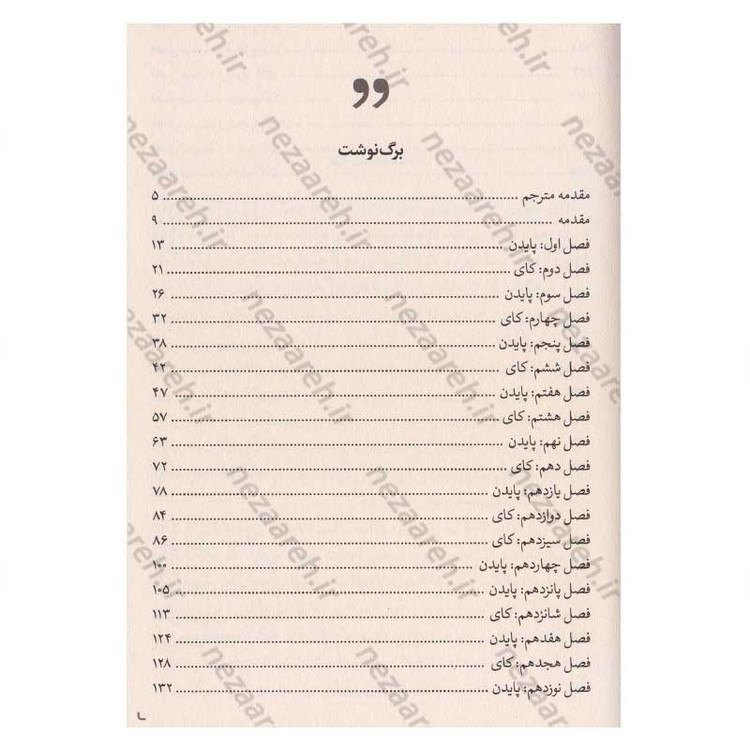 برگ‌نوشت
مقدمه مترجم ۵
مقدمه ۹
فصل اول: پایدن ۱۳
فصل دوم: کای ۲۱
فصل سوم: پایدن ۲۶
فصل چهارم: کای ۳۲
فصل پنجم: پایدن ۳۸
فصل ششم: کای ۴۲
فصل هفتم: پایدن ۴۷
فصل هشتم: کای ۵۷
فصل نهم: پایدن ۶۳
فصل دهم: کای ۷۲
فصل یازدهم: پایدن ۷۸
فصل دوازدهم: کای ۸۴
فصل سیزدهم: کای ۸۶
فصل چهاردهم: پایدن ۱۰۰
فصل پانزدهم: پایدن ۱۰۵
فصل شانزدهم: کای ۱۱۳
فصل هفدهم: پایدن ۱۲۴
فصل هجدهم: کای ۱۲۸
فصل نوزدهم: پایدن ۱۳۲
nezaareh.ir